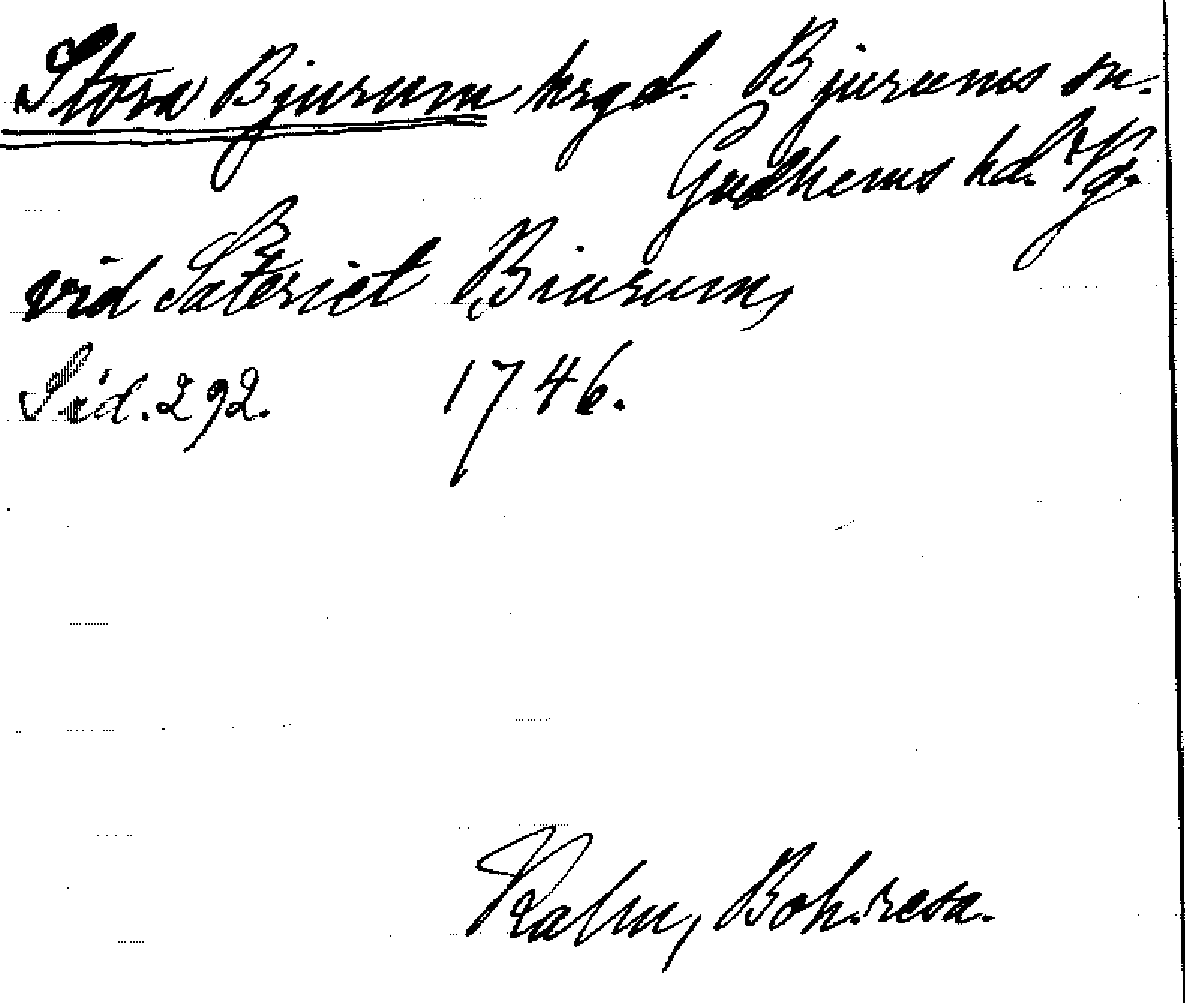 Stora Bjurum hrgd. Bjurums sn.
Gudhems hd. Vg.
vid Säteriet Biurum,
Sid. 292. 1746.
Kalm, Boh. resa.